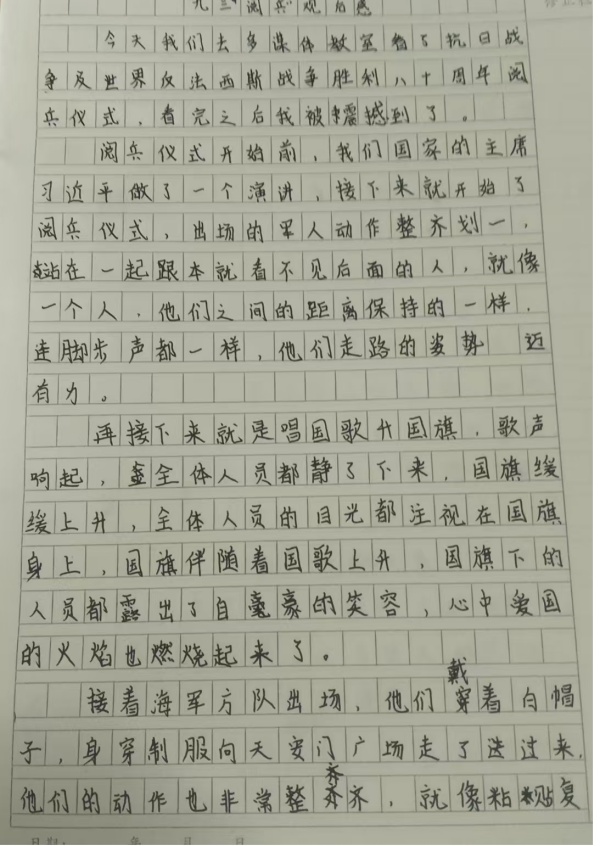 九三阅兵观后感
今天我们去多谋体教室看了抗日战
争及世界反法西斯战争胜利八十周年阅
兵仪式，看完之后我被震撼到了。
阅兵仪式开始前，我们国家的主席
习近平做了一个演讲，接下来就开始了
阅兵仪式，出场的军人动作整齐划一，
站在一起跟本就看不见后面的人，就像
一个人，他们之间的距离保持的一样，
连脚步声都一样，他们走路的姿势 迈
有力。
再接下来就是唱国歌升国旗，歌声
响起，全体人员都静了下来，国旗缓
缓上升，全体人员的目光都注视在国旗
身上，国旗伴随着国歌上升，国旗下的
人员都露出了自豪的笑容，心中爱国
的火焰也燃烧起来了。
接着海军方队出场，他们戴着白帽
子，身穿制服向天安门广场走了过来，
他们的动作也非常整齐，就像粘贴复
日期： 年 月 日